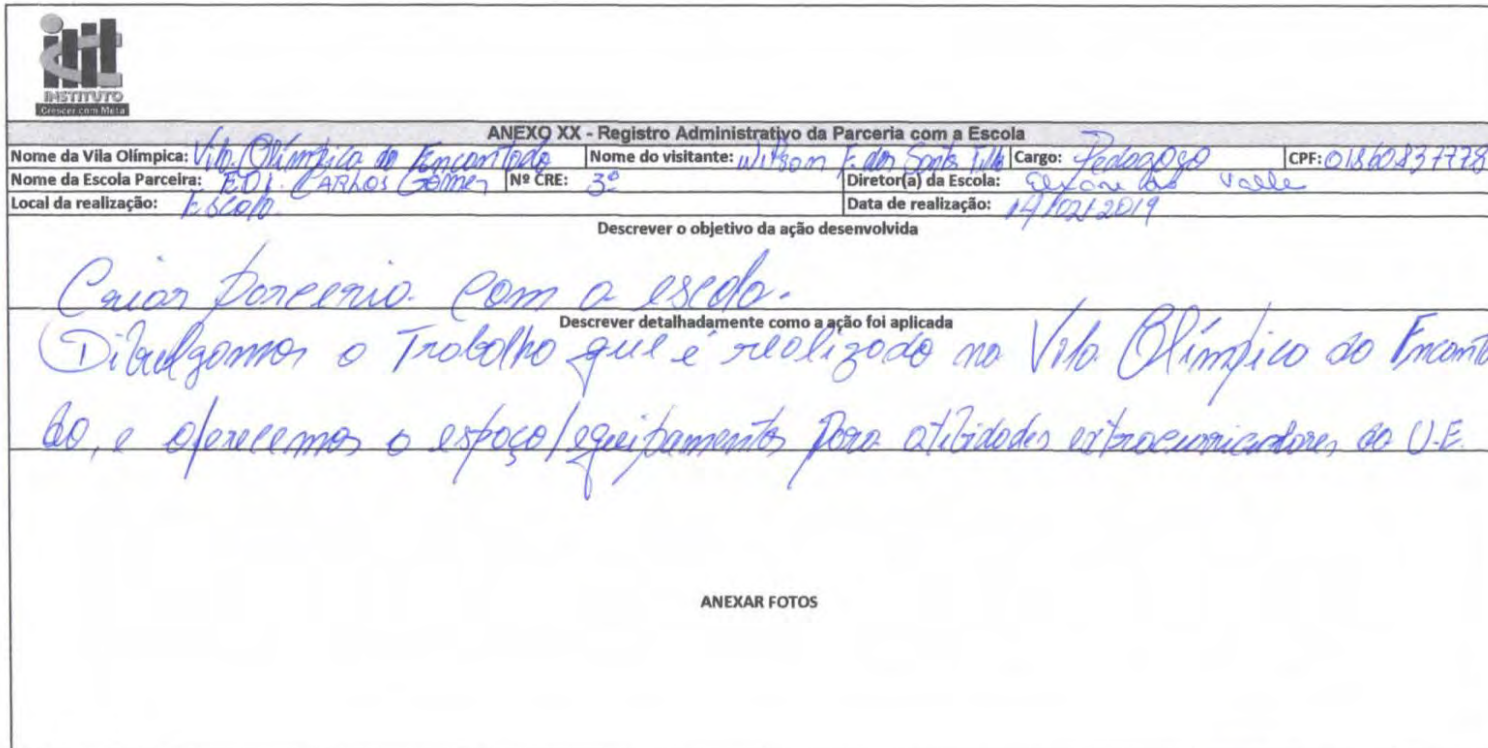 INSTITUTO
Crescer com Meta
ANEXO XX - Registro Administrativo da Parceria com a Escola
Nome da Vila Olímpica: Vila Olímpica do Encantado Nome do visitante: Wilson F. dos Santos Filho Cargo: Pedagogo CPF: 01860837778
Nome da Escola Parceira: E.D.I. CARLOS GOMES Nº CRE: 3º Diretor(a) da Escola: Valle
Local da realização: Escola Data de realização: 14/02/2019
Descrever o objetivo da ação desenvolvida
Criar parceria com a escola.
Descrever detalhadamente como a ação foi aplicada
Divulgamos o Trabalho que é realizado na Vila Olímpica do Encanta
do, e oferecemos o espaço/equipamentos para atividades extracurriculares da U.E.
ANEXAR FOTOS